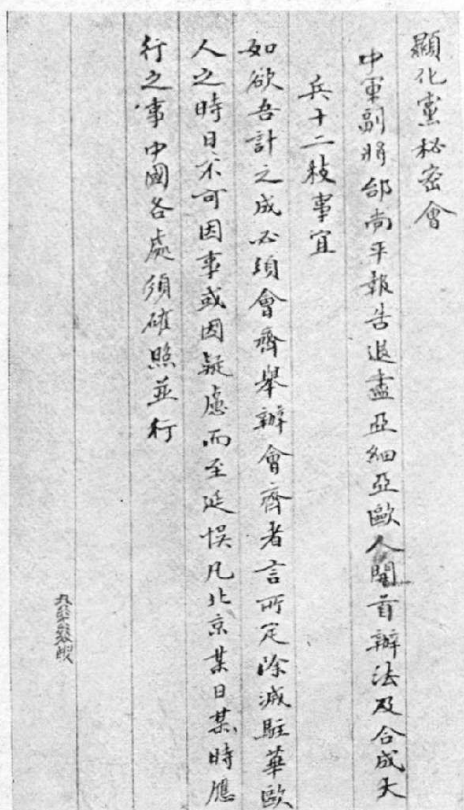 顯化黨秘密會
中軍副將邰尚平報告退盡亞細亞歐人開首辦法及合成大
兵十二枝事宜
如欲吾計之成必須會齊舉辦會齊者言所定除滅駐華歐
人之時日不可因事或因疑慮而至延悞凡北京某日某時應
行之事中國各處須確照並行